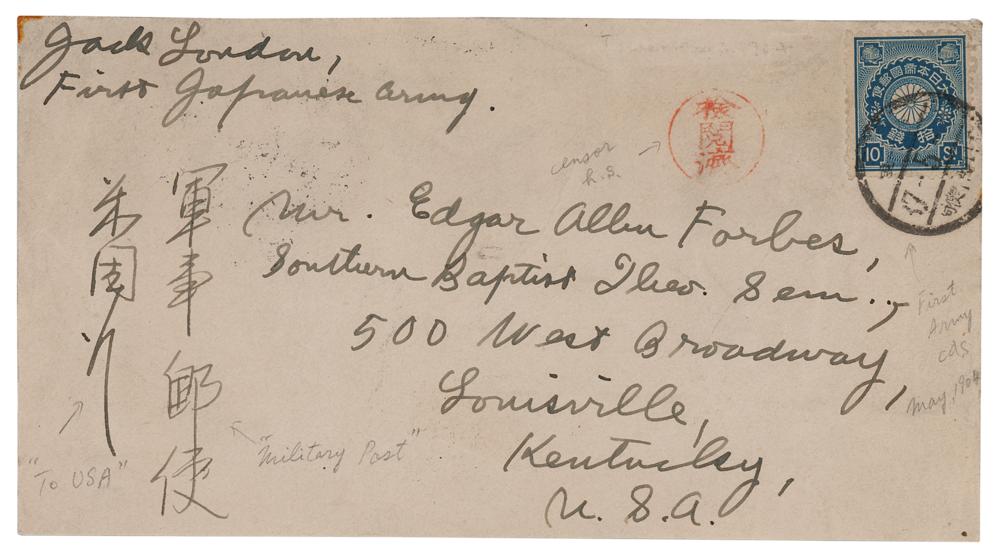 Jack London,
First Japanese Army.
軍事郵便
米国行
検閲済
censor
h.s.
大日本帝國郵便
拾錢
10 Sn
Mr. Edgar Allen Forbes,
Southern Baptist Theo. Sem.,
500 West Broadway,
Louisville,
Kentucky,
U. S. A.
First
Army
cds
May, 1904
"To USA"
"Military Post"